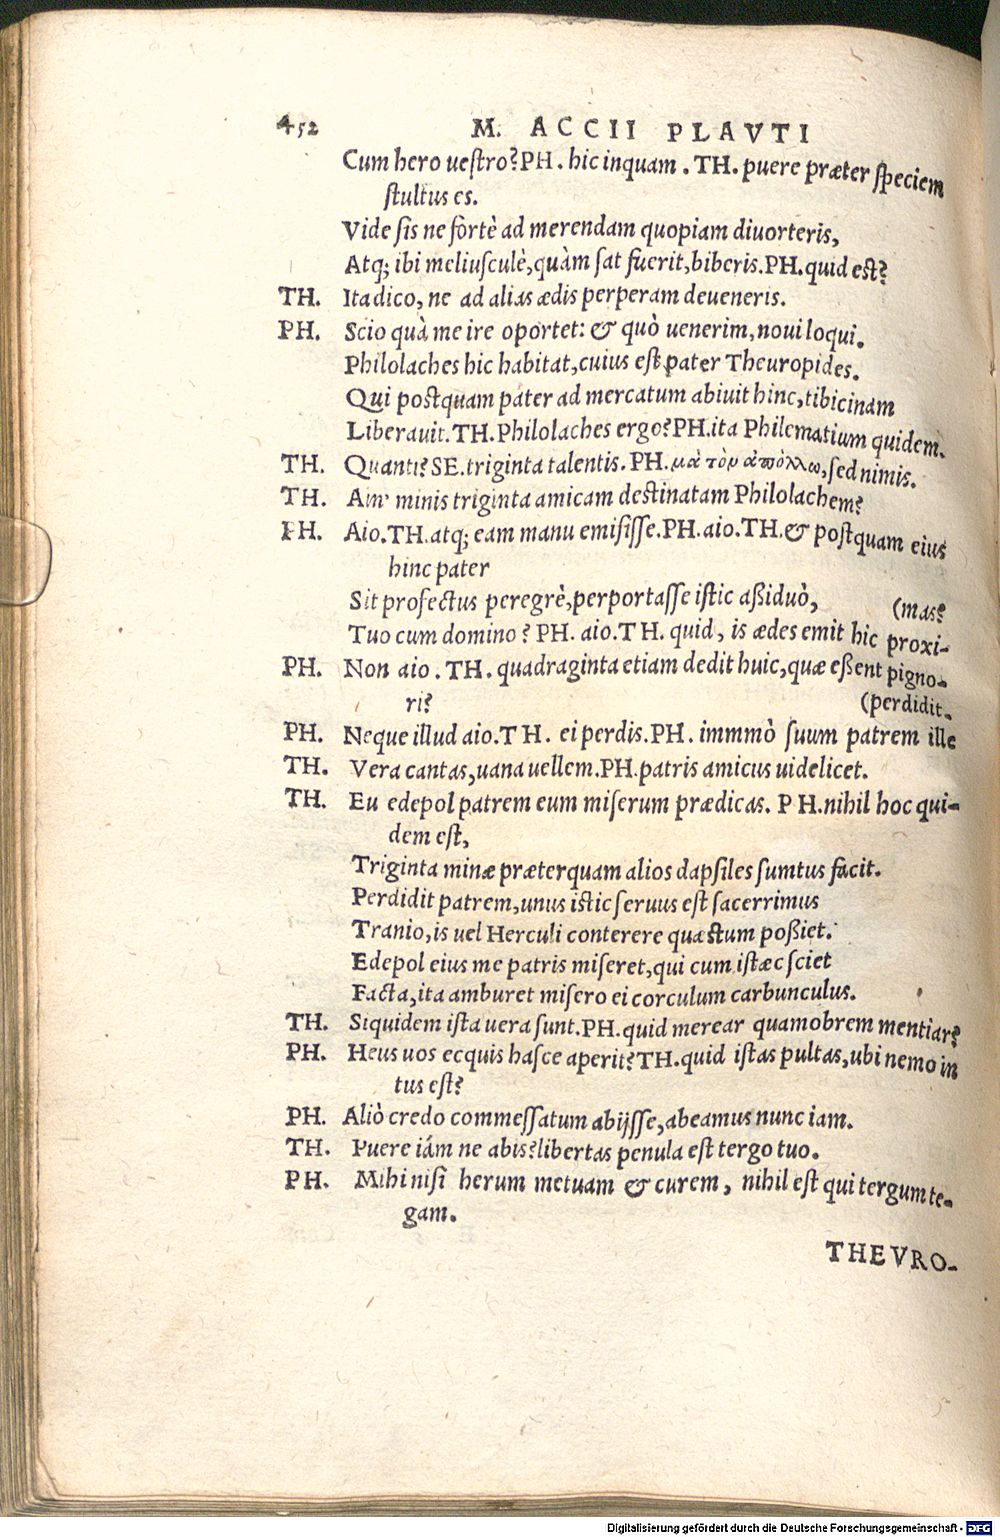 452 M. ACCII PLAVTI
Cum hero uestro? PH. hic inquam. TH. puere præter speciem
stultus es.
Vide sis ne fortè ad merendam quopiam diuorteris,
Atq; ibi meliusculè, quàm sat fuerit, biberis. PH. quid est?
TH. Ita dico, ne ad alias ædis perperam deueneris.
PH. Scio quà me ire oportet: & quò uenerim, noui loqui.
Philolaches hic habitat, cuius est pater Theuropides.
Qui postquam pater ad mercatum abiuit hinc, tibicinam
Liberauit. TH. Philolaches ergo? PH. ita Philematium quidem.
TH. Quanti? SE. triginta talentis. PH. μὰ τὸν ἀπόλλω, sed nimis.
TH. Ain' minis triginta amicam destinatam Philolachem?
PH. Aio. TH. atq; eam manu emisisse. PH. aio. TH. & postquam eius
hinc pater
Sit profectus peregrè, perportasse istic aßiduò,
(mas?
Tuo cum domino? PH. aio. TH. quid, is ædes emit hic proxi-
PH. Non aio. TH. quadraginta etiam dedit huic, quæ eßent pigno-
ri? (perdidit.
PH. Neque illud aio. TH. ei perdis. PH. immmò suum patrem ille
TH. Vera cantas, uana uellem. PH. patris amicus uidelicet.
TH. Eu edepol patrem eum miserum prædicas. PH. nihil hoc qui-
dem est,
Triginta minæ præterquam alios dapsiles sumtus facit.
Perdidit patrem, unus istic seruus est sacerrimus
Tranio, is uel Herculi conterere quæstum poßiet.
Edepol eius me patris miseret, qui cum istæc sciet
Facta, ita amburet misero ei corculum carbunculus.
TH. Siquidem ista uera sunt. PH. quid merear quamobrem mentiar?
PH. Heus uos ecquis hasce aperit? TH. quid istas pultas, ubi nemo in
tus est?
PH. Aliò credo commessatum abijsse, abeamus nunc iam.
TH. Puere iám ne abis? libertas penula est tergo tuo.
PH. Mihi nisi herum metuam & curem, nihil est qui tergum te-
gam.
THEVRO-
Digitalisierung gefördert durch die Deutsche Forschungsgemeinschaft - DFG